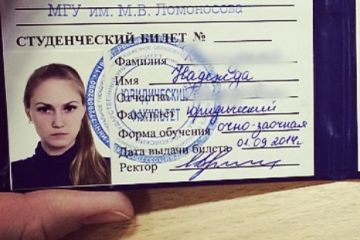 МГУ им. М.В. Ломоносова
СТУДЕНЧЕСКИЙ БИЛЕТ №
Фамилия
Имя Надежда
Отчество
Факультет юридический
Форма обучения очно-заочная
Дата выдачи билета 01.09.2014г.
Ректор
ЮРИДИЧЕСКИЙ
ФАКУЛЬТЕТ